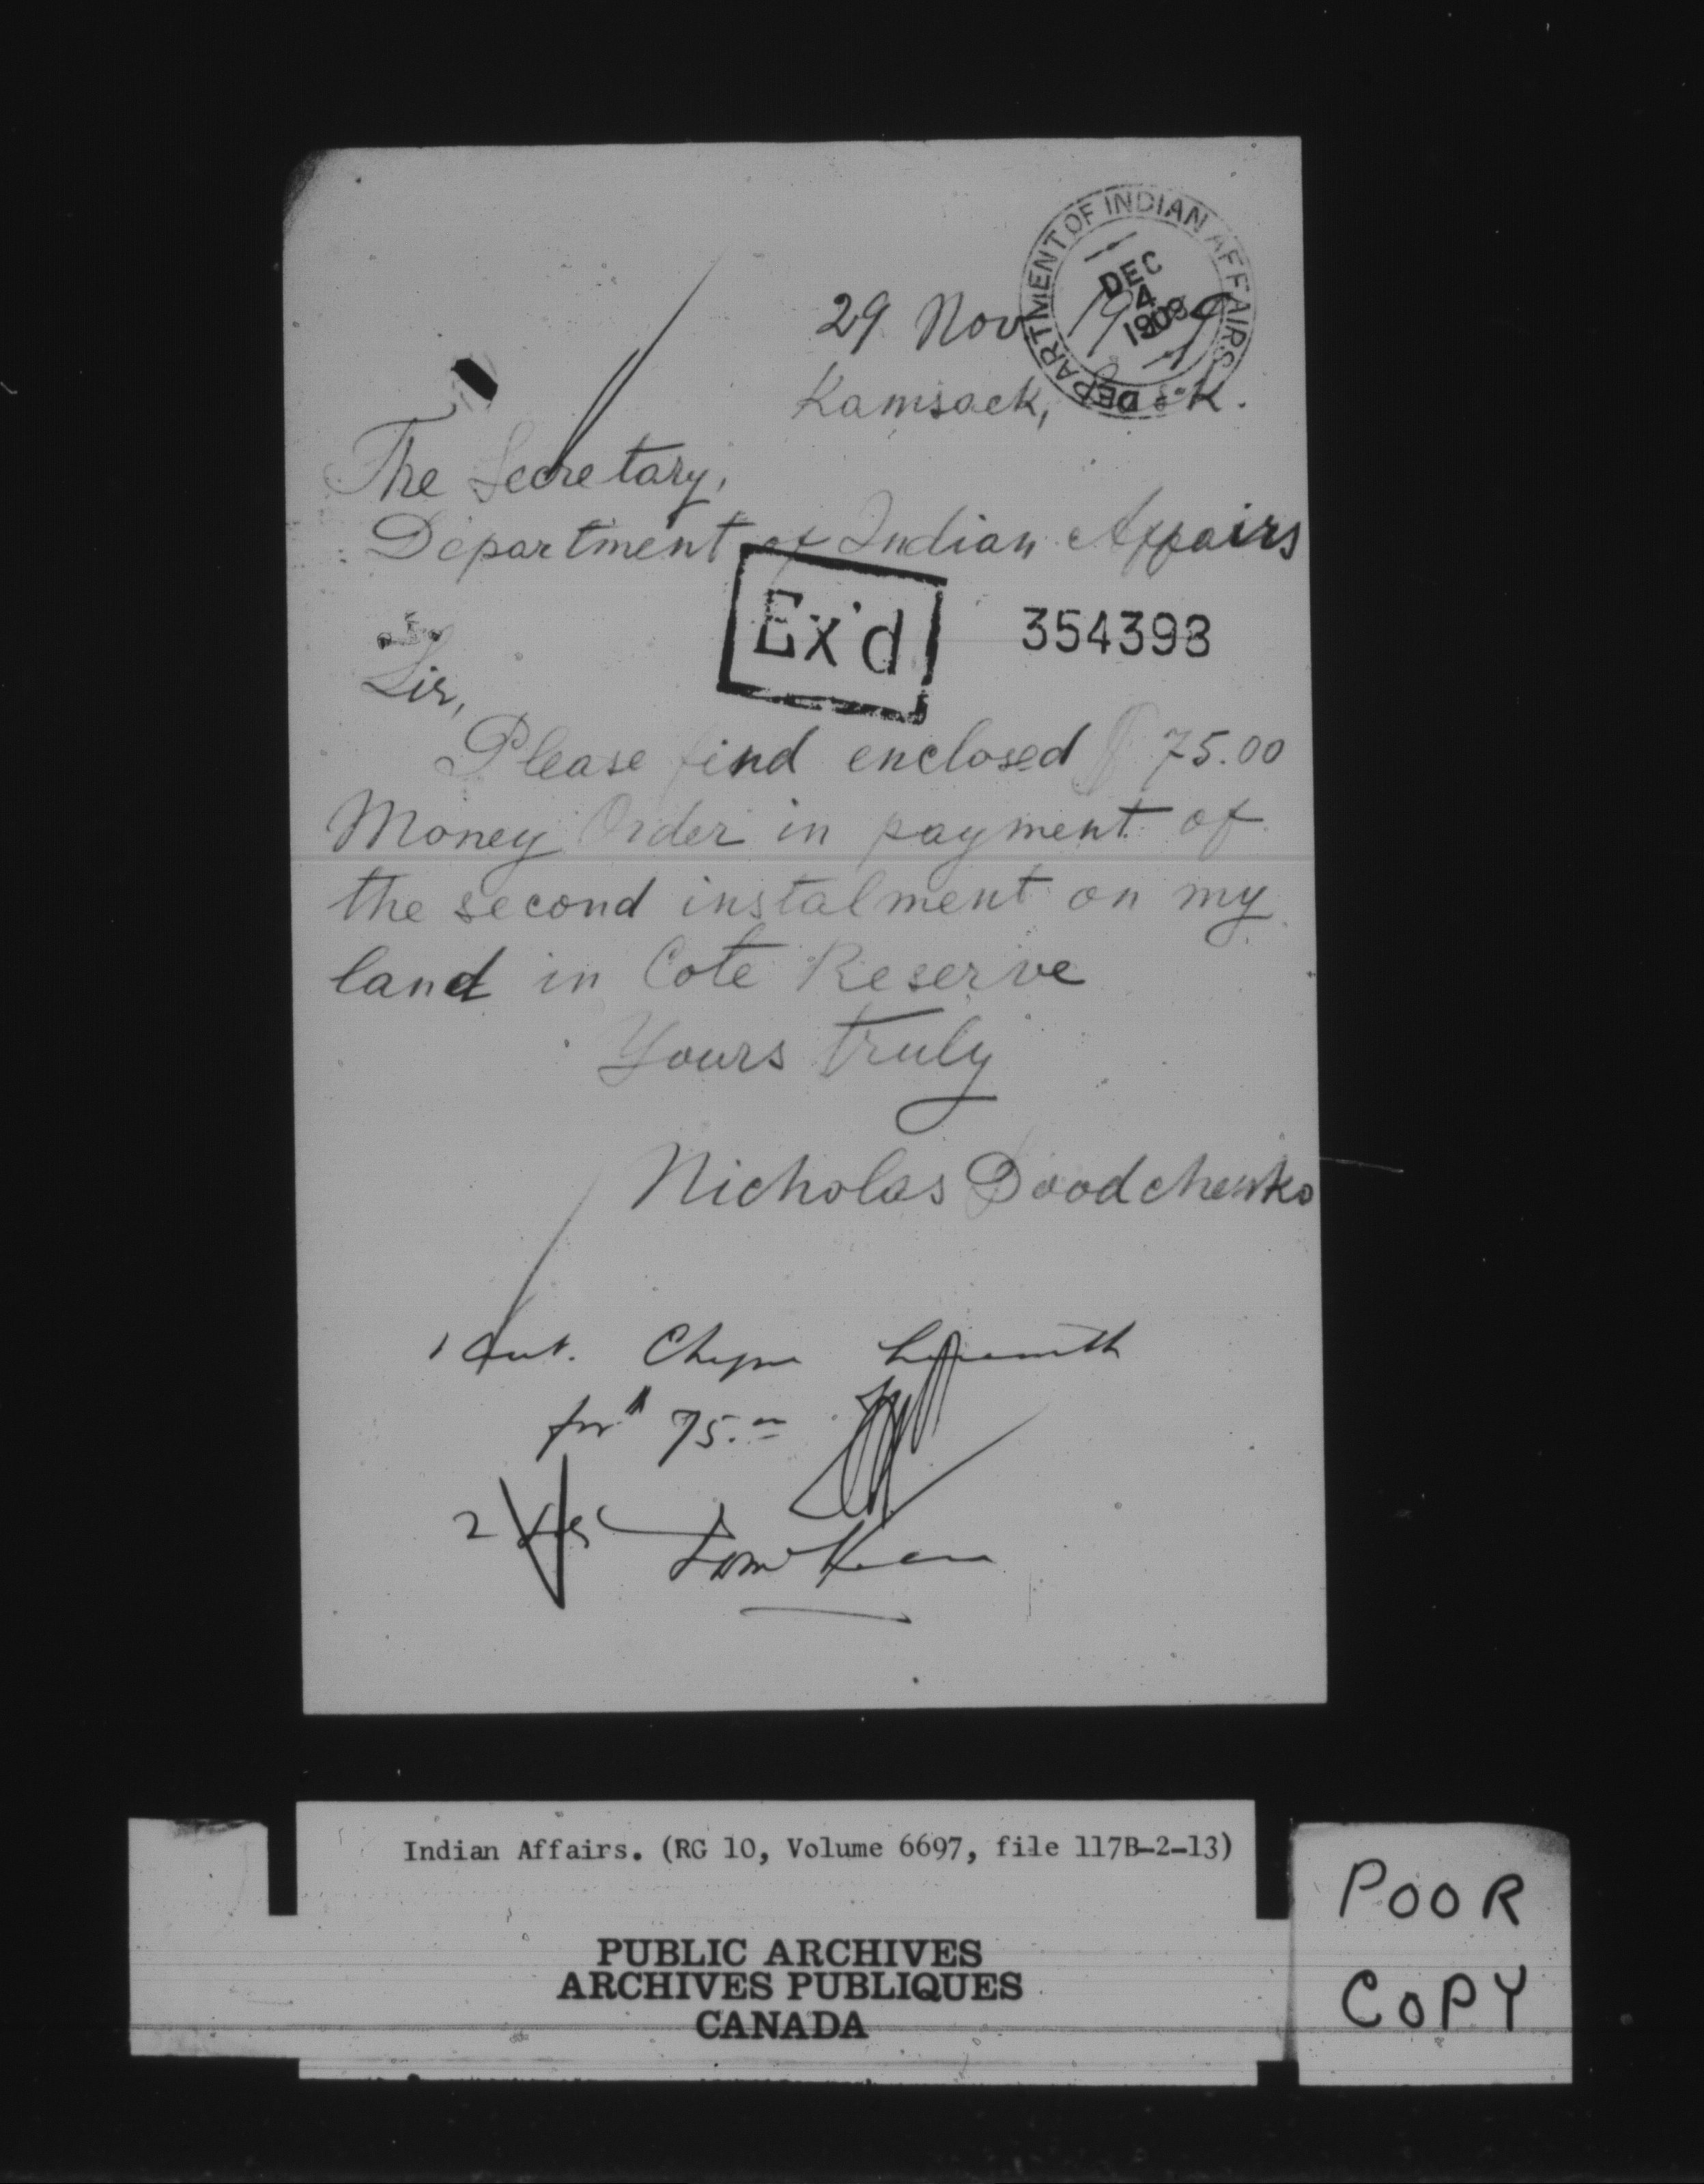 29 Nov 1909
Kamsack, Sask.
DEPARTMENT OF INDIAN AFFAIRS
DEC
4
1909
The Secretary,
Department of Indian Affairs
Ex'd
354393
Sir,
Please find enclosed $75.00
Money Order in payment of
the second instalment on my
land in Cote Reserve
Yours truly
Nicholas Doodchenko
1
for $75.00
2
Indian Affairs. (RG 10, Volume 6697, file 117B-2-13)
PUBLIC ARCHIVES
ARCHIVES PUBLIQUES
CANADA
POOR
COPY